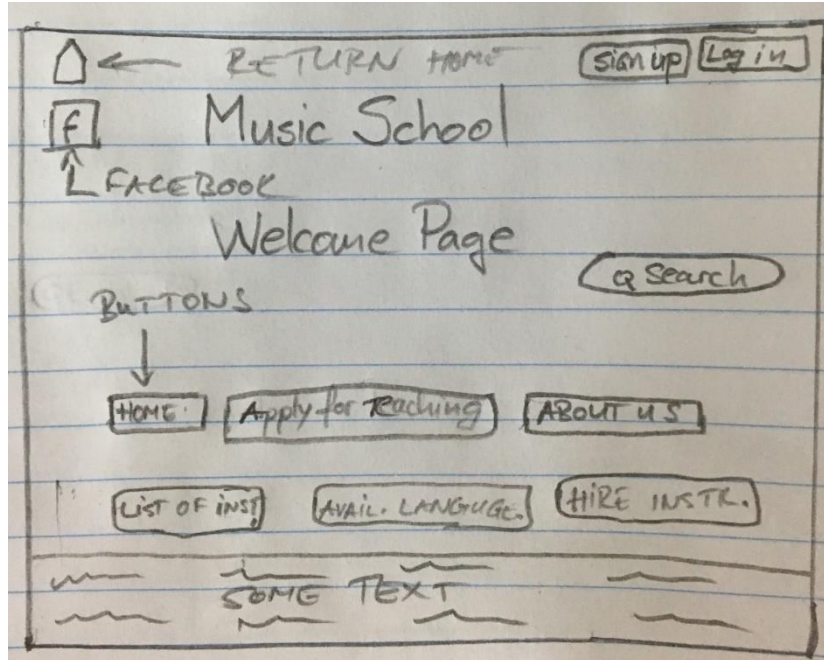 RETURN HOME Sign up Log in
f Music School
FACEBOOK
Welcome Page
Search
BUTTONS
HOME Apply for Teaching ABOUT US
LIST OF INST. AVAIL. LANGUGE. HIRE INSTR.
SOME TEXT